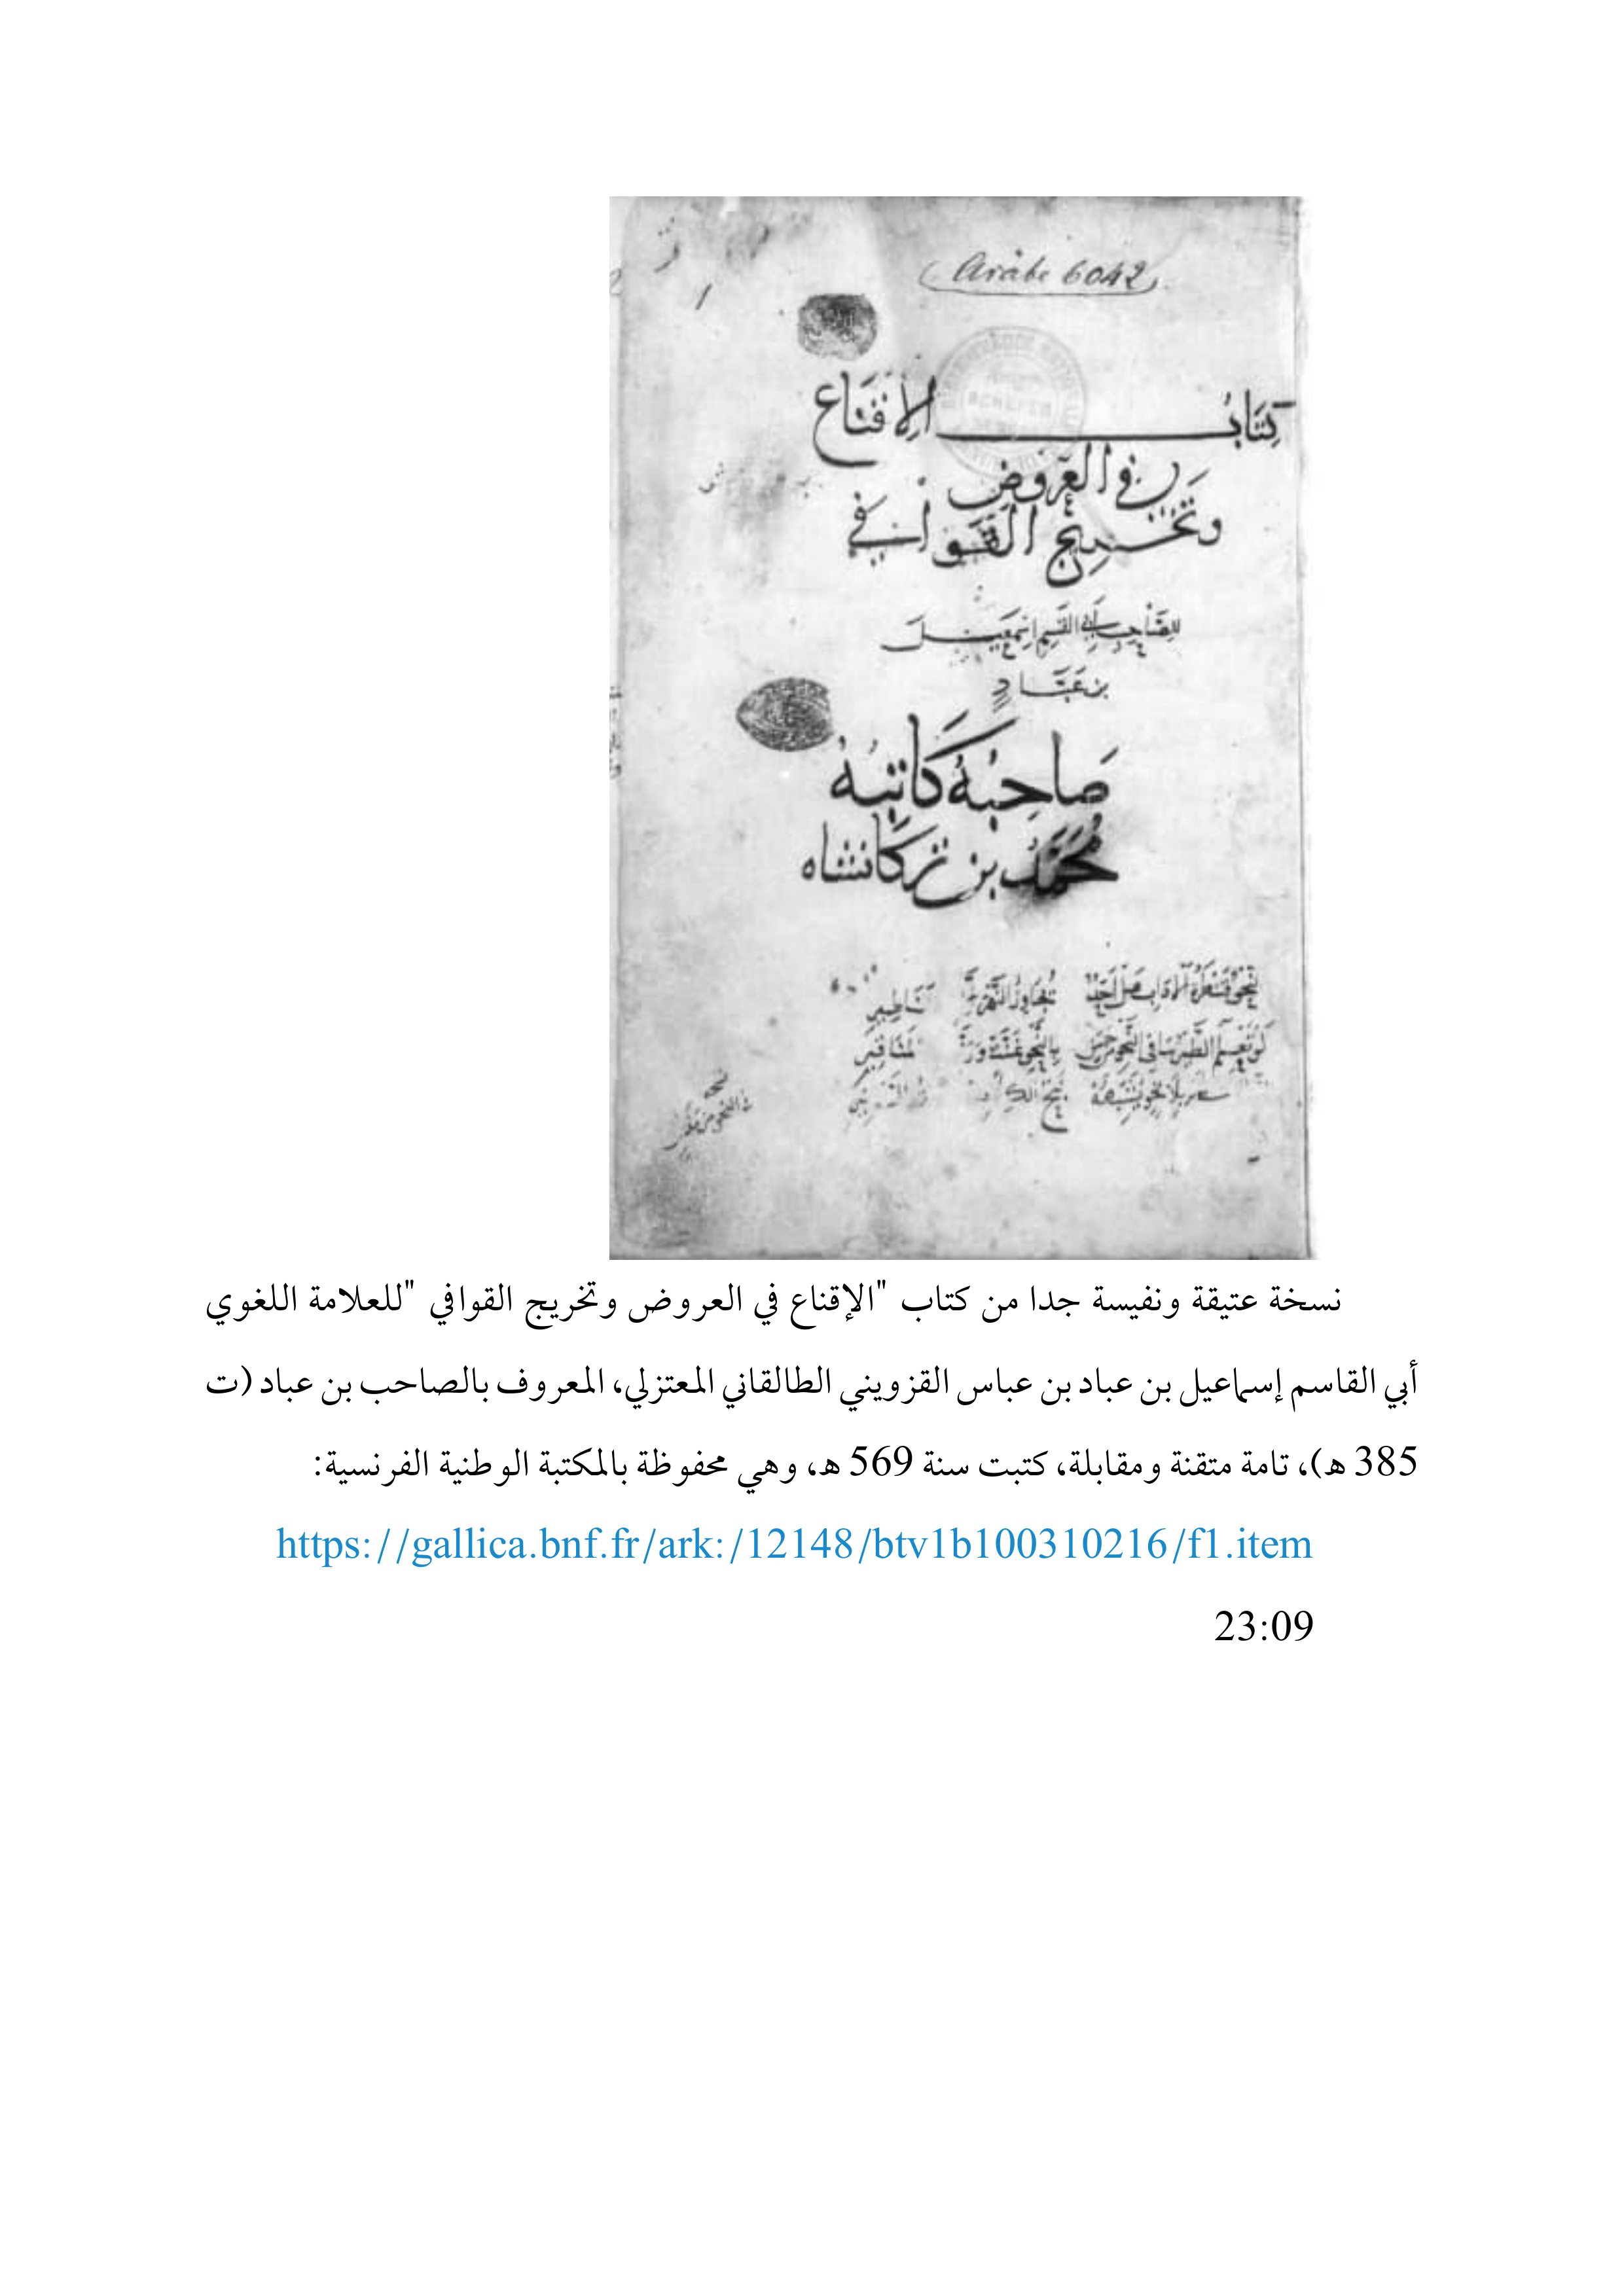 Arabe 6042
1
كِتَابُ الإقنَاع
في العَروضِ
وَتَخريج القَوافي
للصَّاحِب أبي القَسِم إسمعيل
بن عَبَّادٍ
صَاحِبُهُ كَاتِبُهُ
مُحَمَّد بن تركانشاه
نسخة عتيقة ونفيسة جدا من كتاب "الإقناع في العروض وتخريج القوافي "للعلامة اللغوي
أبي القاسم إسماعيل بن عباد بن عباس القزويني الطالقاني المعتزلي، المعروف بالصاحب بن عباد (ت
385 هـ)، تامة متقنة ومقابلة، كتبت سنة 569 هـ، وهي محفوظة بالمكتبة الوطنية الفرنسية:
https://gallica.bnf.fr/ark:/12148/btv1b100310216/f1.item
23:09